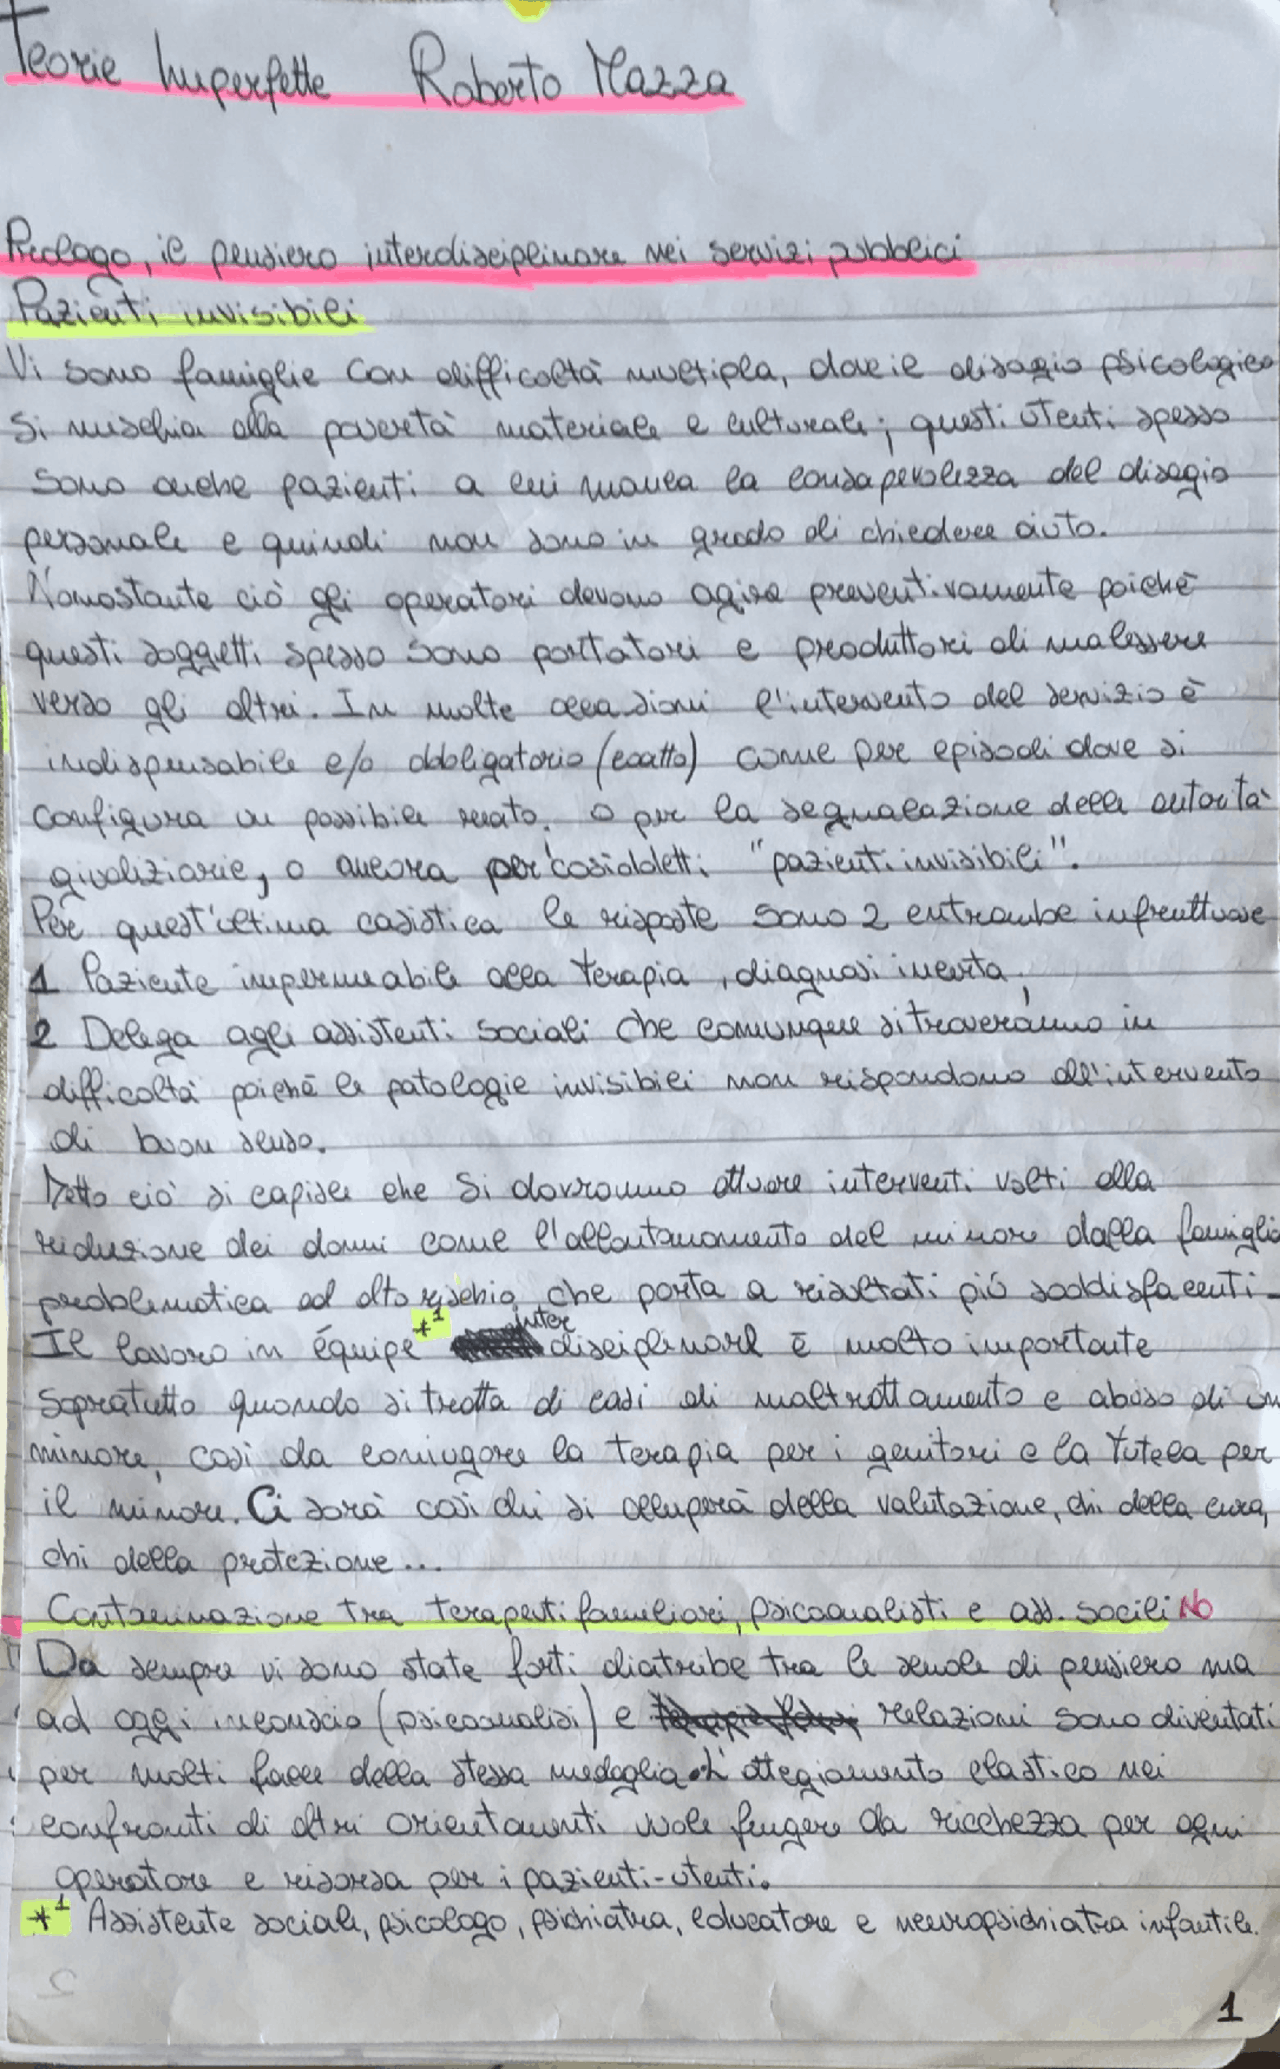 Teorie Imperfette Roberto Mazza
Prologo, il pensiero interdisciplinare nei servizi pubblici
Pazienti invisibili
Vi sono famiglie con difficoltà multipla, dove il disagio psicologico
si mischia alla povertà materiale e culturale; questi utenti spesso
sono anche pazienti a cui manca la consapevolezza del disagio
personale e quindi non sono in grado di chiedere aiuto.
Nonostante ciò gli operatori devono agire preventivamente poichè
questi soggetti spesso sono portatori e produttori di malessere
verso gli altri. In molte occasioni l'intervento del servizio è
indispensabile e/o obbligatorio (coatto) come per episodi dove si
configura un possibile reato, o per la segnalazione delle autorità
giudiziarie, o ancora per i cosiddetti "pazienti invisibili".
Per quest'ultima casistica le risposte sono 2 entrambe infruttuose
1 Paziente impermeabile alla terapia, diagnosi incerta,
2 Delega agli assistenti sociali che comunque si troveranno in
difficoltà poichè le patologie invisibili non rispondono all'intervento
di buon senso.
Detto ciò si capisce che si dovranno attuare interventi volti alla
riduzione dei danni come l'allontanamento del minore dalla famiglia
problematica ad alto rischio, che porta a risultati più soddisfacenti.
Il lavoro in équipe *1 inter disciplinare è molto importante
sopratutto quando si tratta di casi di maltrattamento e abuso di un
minore, così da coniugare la terapia per i genitori e la tutela per
il minore. Ci sarà così chi si occuperà della valutazione, chi della cura,
chi della protezione...
Contaminazione tra terapeuti familiari, psicoanalisti e ass. socili No
Da sempre vi sono state forti diatribe tra le scuole di pensiero ma
ad oggi inconscio (psicoanalisi) e relazioni sono diventati
per molti facce della stessa medaglia. L'attegiamento elastico nei
confronti di altri orientamenti vuole fungere da ricchezza per ogni
operatore e risorsa per i pazienti-utenti.
*1 Assistente sociale, psicologo, psichiatra, educatore e neuropsichiatra infantile.
1